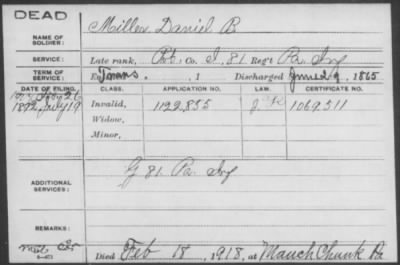 DEAD
NAME OF SOLDIER: Miller Daniel B
SERVICE: Late rank, Pvt, Co. I, 81 Reg't Pa Inf
TERM OF SERVICE: Enlisted , 1 Discharged June 29, 1865
DATE OF FILING. CLASS. APPLICATION NO. LAW. CERTIFICATE NO.
1892 July 19 Invalid, 1122,855 1069,511
Widow,
Minor,
ADDITIONAL SERVICES: G 81 Pa Inf
REMARKS:
Died Feb 18, 1918, at Mauch Chunk Pa